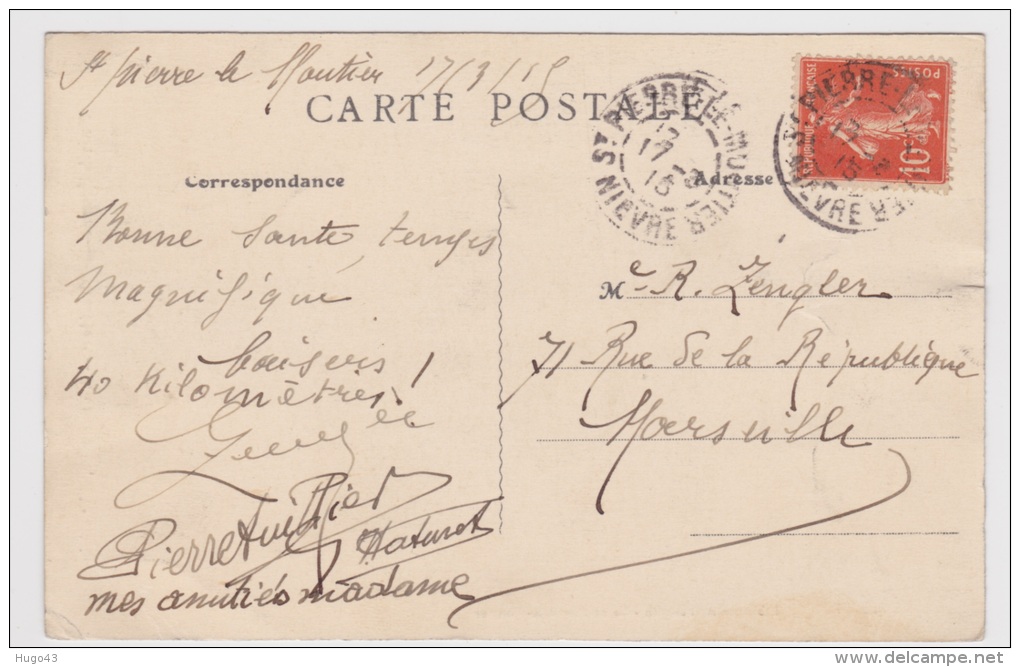 St Pierre le Moutier 17/3/15
CARTE POSTALE
ST PIERRE-LE-MOUTIER
17-3
15
NIEVRE
REPUBLIQUE FRANÇAISE
POSTES
10c
Correspondance
Adresse
Bonne Santé, temps
Magnifique
baisers !
40 Kilomètres
Pierre
mes amitiés madame
Me R. Zengler
71 Rue de la République
Marseille
Hugo43
delcampe.net